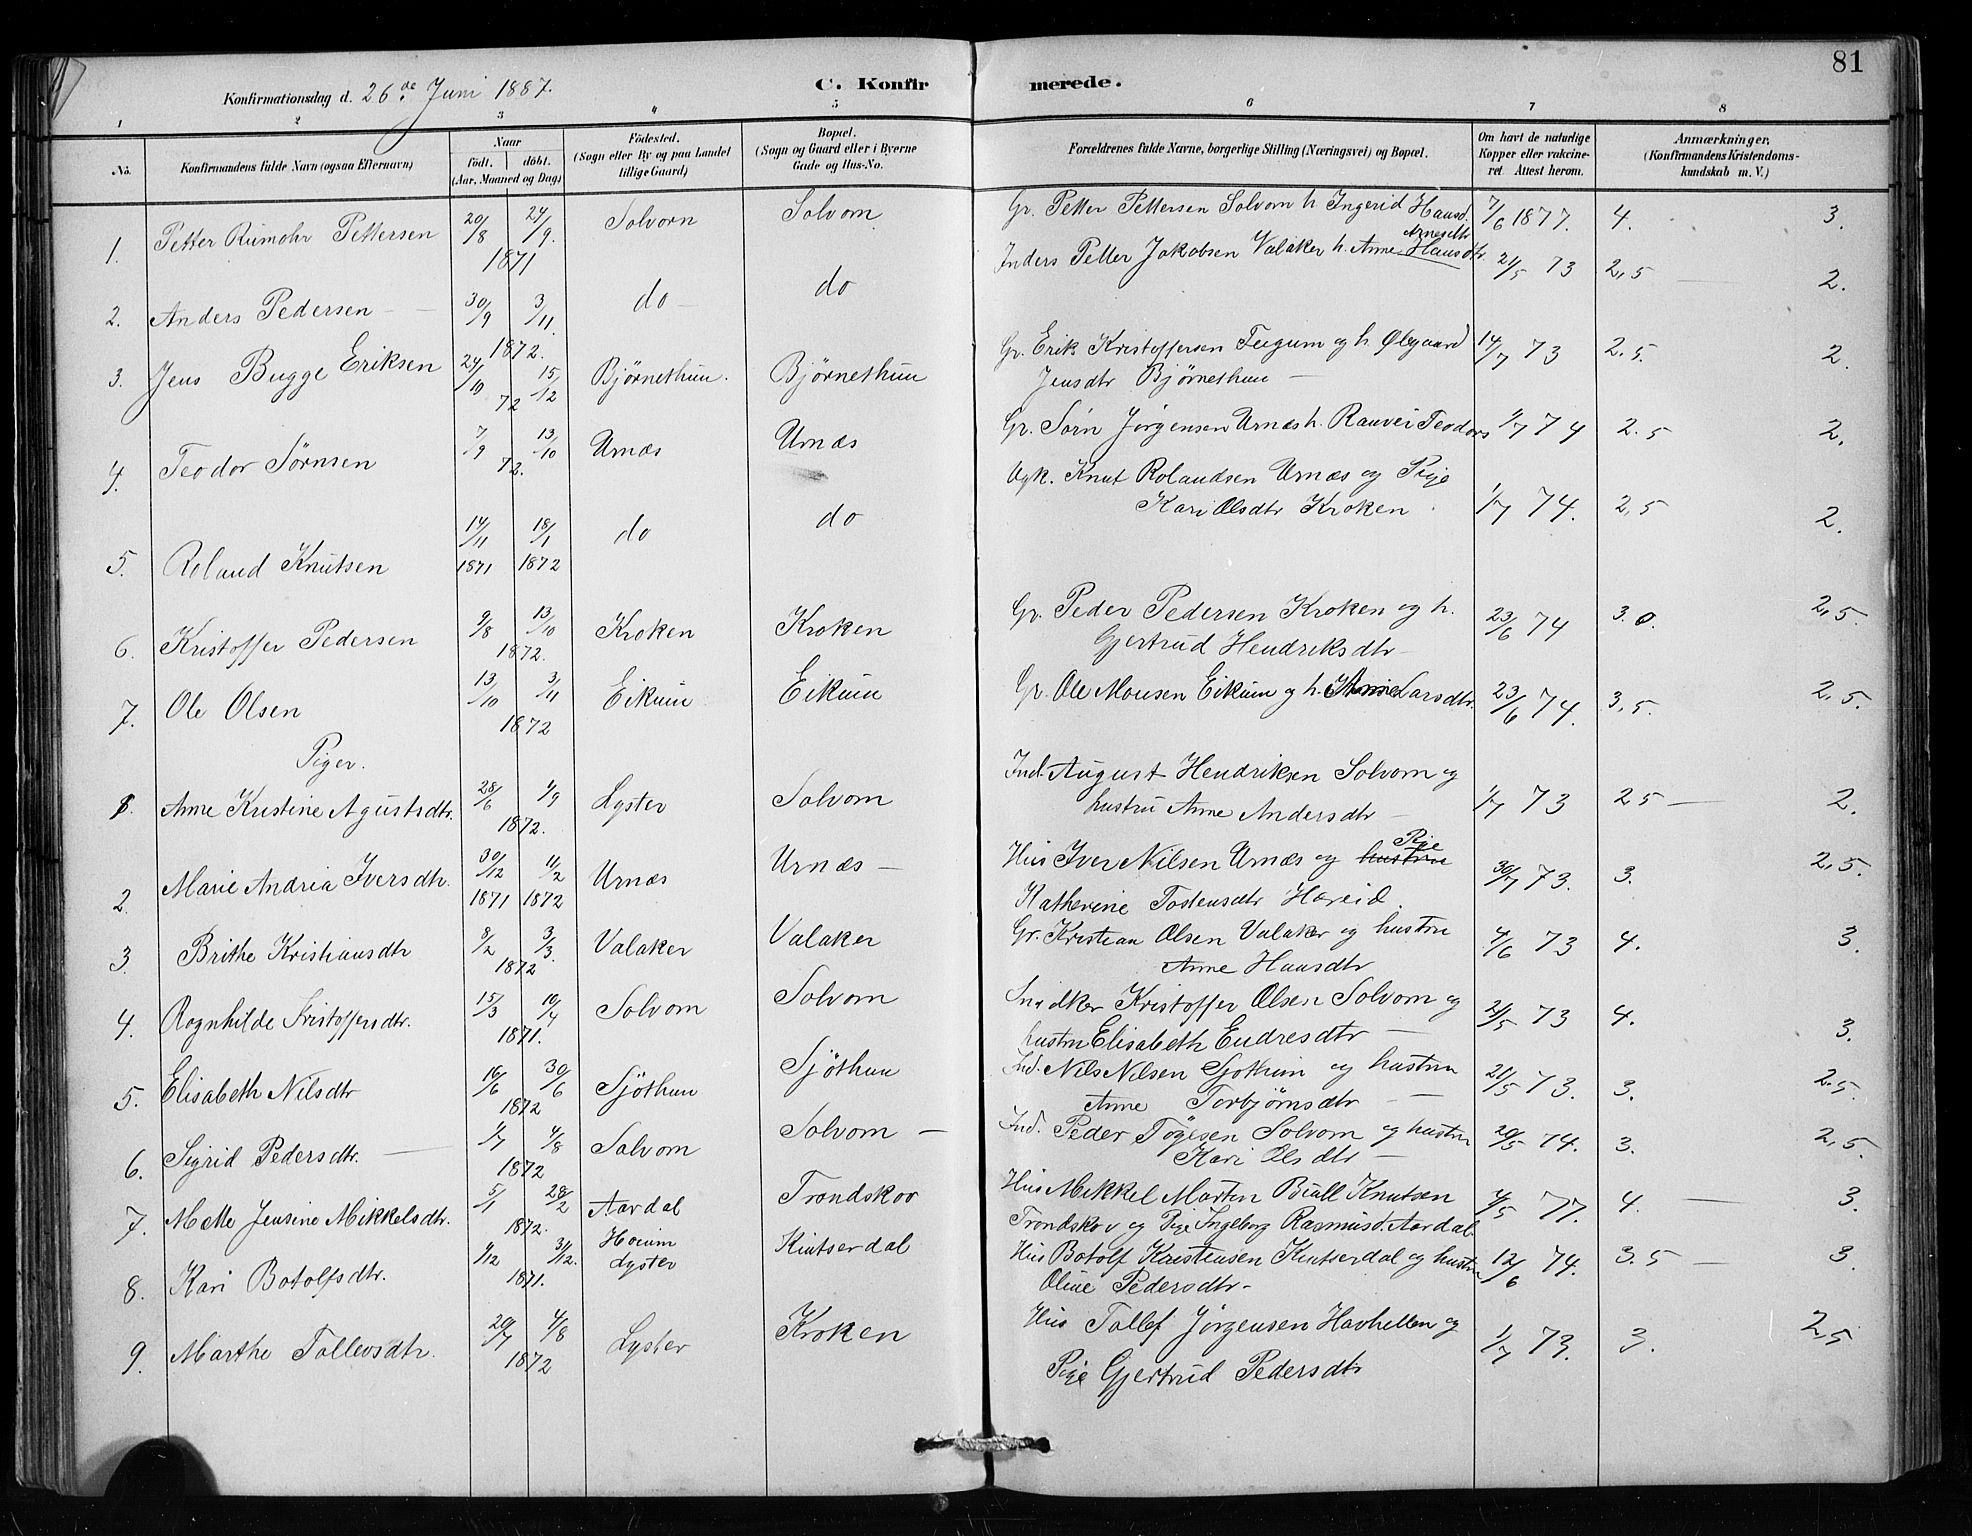 81
Konfirmationsdag d. 26de Juni 1887. C. Konfirmerede.
1 2 3 4 5 6 7 8
No. Konfirmandens fulde Navn (ogsaa Efternavn) Naar födt. döbt. (Aar, Maaned og Dag) Födested. (Sogn eller By og paa Landet tillige Gaard) Bopæl. (Sogn og Gaard eller i Byerne Gade og Hus-No. Forældrenes fulde Navne, borgerlige Stilling (Næringsvei) og Bopæl. Om havt de naturlige Kopper eller vakcineret Attest herom. Anmærkninger, (Konfirmandens Kristendomskundskab m. V.)
1. Petter Rumohr Pettersen 20/8 24/9. 1871 Solvorn Solvorn Gr. Petter Pettersen Solvorn h. Ingerid Hansd. 7/6 1877. 4. 3.
2. Anders Pedersen 30/9 3/11. 1872. do do Inders Petter Jakobsen Valaker h. Anne Hansdtr. Arnesdtr 21/5 73 2,5 2.
3. Jens Bugge Eriksen 24/10 15/12 72 Björnethun. Björnethun Gr. Erik Kristoffersen Fugum og h. Ølegaard
Jensdtr Bjørnethun 14/7 73 2.5. 2.
4. Teodor Sørnsen 7/9 13/10 72. Urnæs Urnæs Gr. Sørn Jørgensen Urnæs h. Rauvei Teodors 1/7 74 2.5 2.
5. Roland Knutsen 14/11 1871 18/1 1872 do do Ugk. Knut Rolandsen Urnæs og Pige
Kari Olsdtr Kroken 1/7 74. 2,5 2.
6. Kristoffer Pedersen 9/8 13/10 1872. Kroken Kroken Gr. Peder Pedersen Kroken og h.
Gjertrud Hendriksdtr 23/6 74 3.0. 2,5.
7. Ole Olsen 13/10 3/11 1872 Eikum Eikum Gr. Ole Monsen Eikum og h. Anne Larsdtr. 23/6 74. 3,5. 2,5.
Piger.
1. Anne Kristine Agustsdtr. 28/6 1/9 1872. Lyster Solvorn Ind. August Hendriksen Solvorn og
hustru Anne Andersdtr 1/7 73 25 2.
2. Marie Andria Iversdtr. 30/12 1871 11/2 1872 Urnæs Urnæs Hus Iver Nilsen Urnæs og hustru Pige
Katherine Tostensdtr Hæreid. 30/7 73. 3. 2,5.
3. Brithe Kristiansdtr 8/2 3/3. 1872 Valaker Valaker Gr. Kristian Olsen Valaker og hustru
Anne Hansdtr 4/6 73 4. 3.
4. Rognhilde Kristoffersdtr. 15/3 10/4 1871. Solvorn Solvorn Snidker Kristoffer Olsen Solvorn og
hustru Elisabeth Endresdtr 21/5 73 4. 3.
5. Elisabeth Nilsdtr 16/6 30/6 1872 Sjöthun Sjöthun Ind. Nils Nilsen Sjøthun og hustru
Anne Torbjørnsdtr 21/5 73. 3. 2.5.
6. Sigrid Pedersdtr. 1/7 4/8 1872 Solvorn Solvorn Ind. Peder Tøgesen Solvorn og hustru
Kari Olsdtr 20/5 74. 3. 2,5.
7. Mette Jensine Mikkelsdtr. 5/1 28/2 1872. Aardal Trondskov Hus Mikkel Marten Büll Knutsen
Trondskov og Pige Ingeborg Rasmusd. Aardal. 4/5 77. 4. 3.
8. Kari Botolfsdtr. 9/12 31/12. 1871. Hoium
Lyster Kintserdal Hus Botolf Kristensen Kintserdal og hustru
Oline Pedersdtr 12/6 74. 3.5 3.
9. Marthe Tollevsdtr. 20/7 4/8 1872 Lyster Kroken Hus Tollef Jørgensen Havhellen og
Pige Gjertrud Pedersdtr 1/7 73. 3. 25